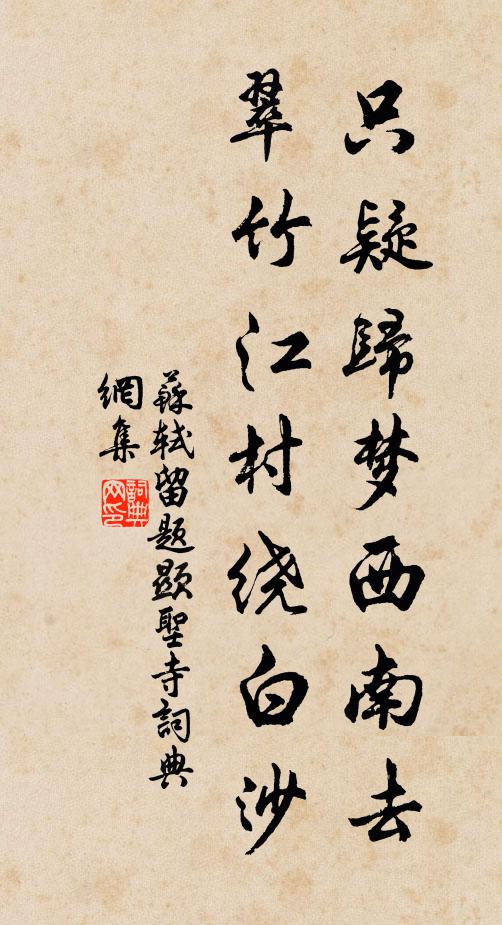 只疑歸梦西南去
翠竹江村绕白沙
蘇軾留題顯聖寺詞典
網集
詞典
网印